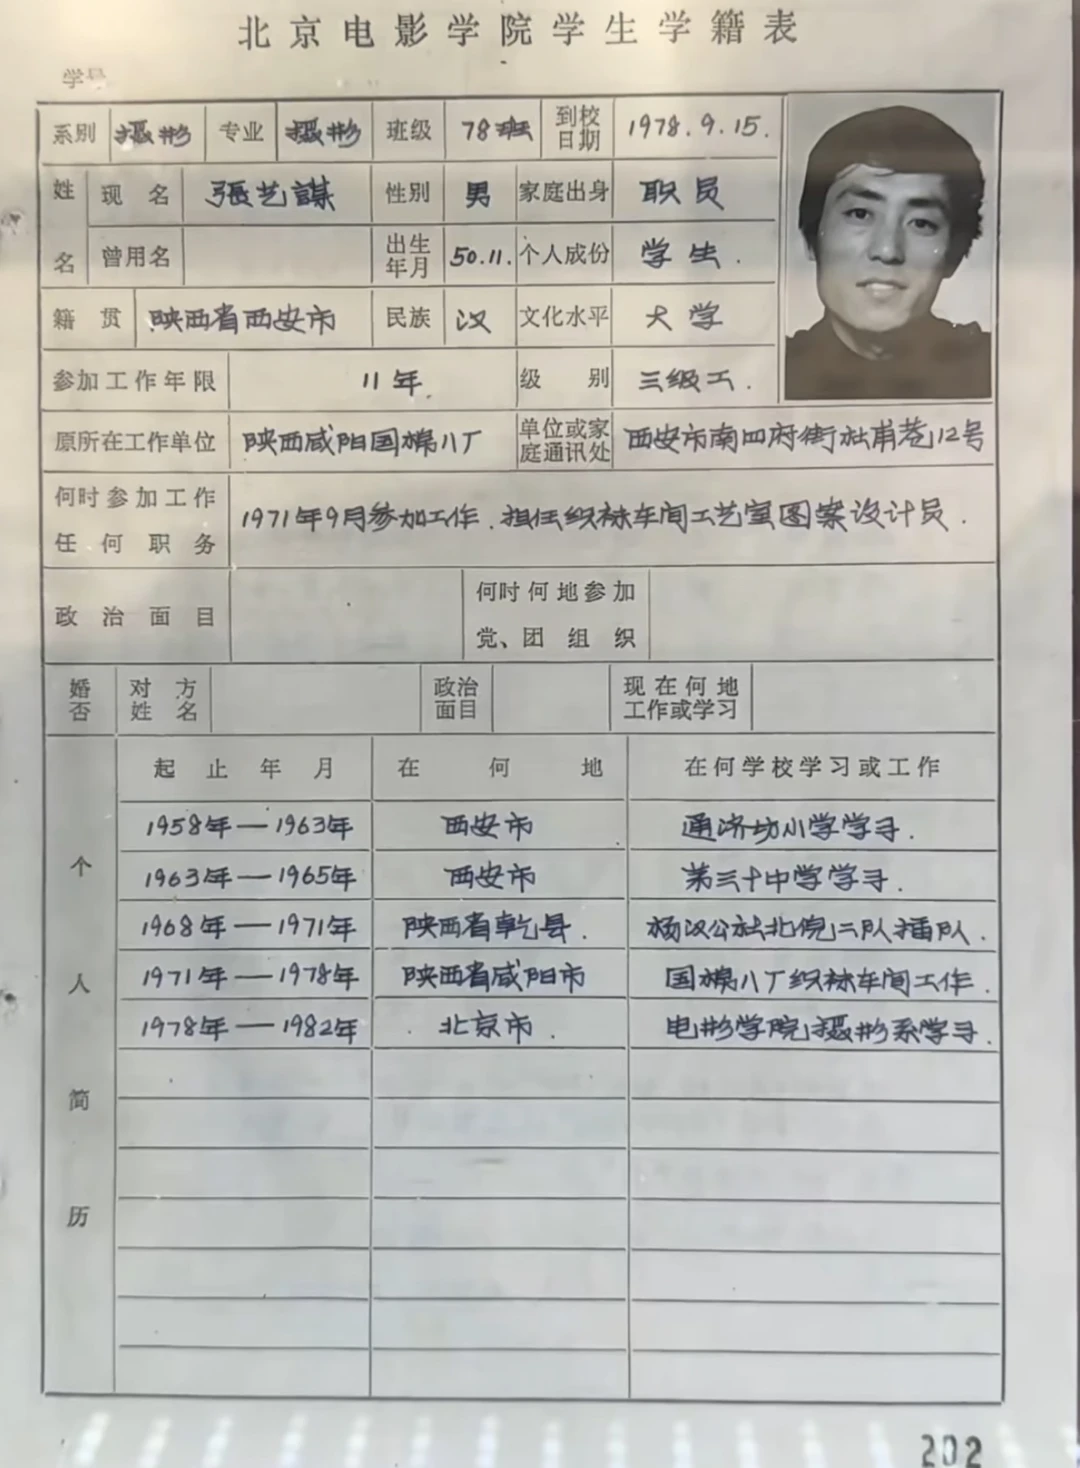 北京电影学院学生学籍表
学号
系别 摄影 专业 摄影 班级 78班 到校日期 1978.9.15.
姓名 现名 張艺謀 性别 男 家庭出身 职员
曾用名 出生年月 50.11. 个人成份 学生.
籍贯 陕西省西安市 民族 汉 文化水平 大学
参加工作年限 11年. 级别 三级工.
原所在工作单位 陕西咸阳国棉八厂 单位或家庭通讯处 西安市南四府街社甫巷12号
何时参加工作任何职务 1971年9月参加工作.担任织袜车间工艺室图案设计员.
政治面目 何时何地参加党、团组织
婚否 对方姓名 政治面目 现在何地工作或学习
个人简历 起止年月 在何地 在何学校学习或工作
1958年—1963年 西安市 通济坊小学学习.
1963年—1965年 西安市 第三十中学学习.
1968年—1971年 陕西省乾县. 杨汉公社北倪二队插队.
1971年—1978年 陕西省咸阳市 国棉八厂织袜车间工作.
1978年—1982年 北京市. 电影学院摄影系学习.
202